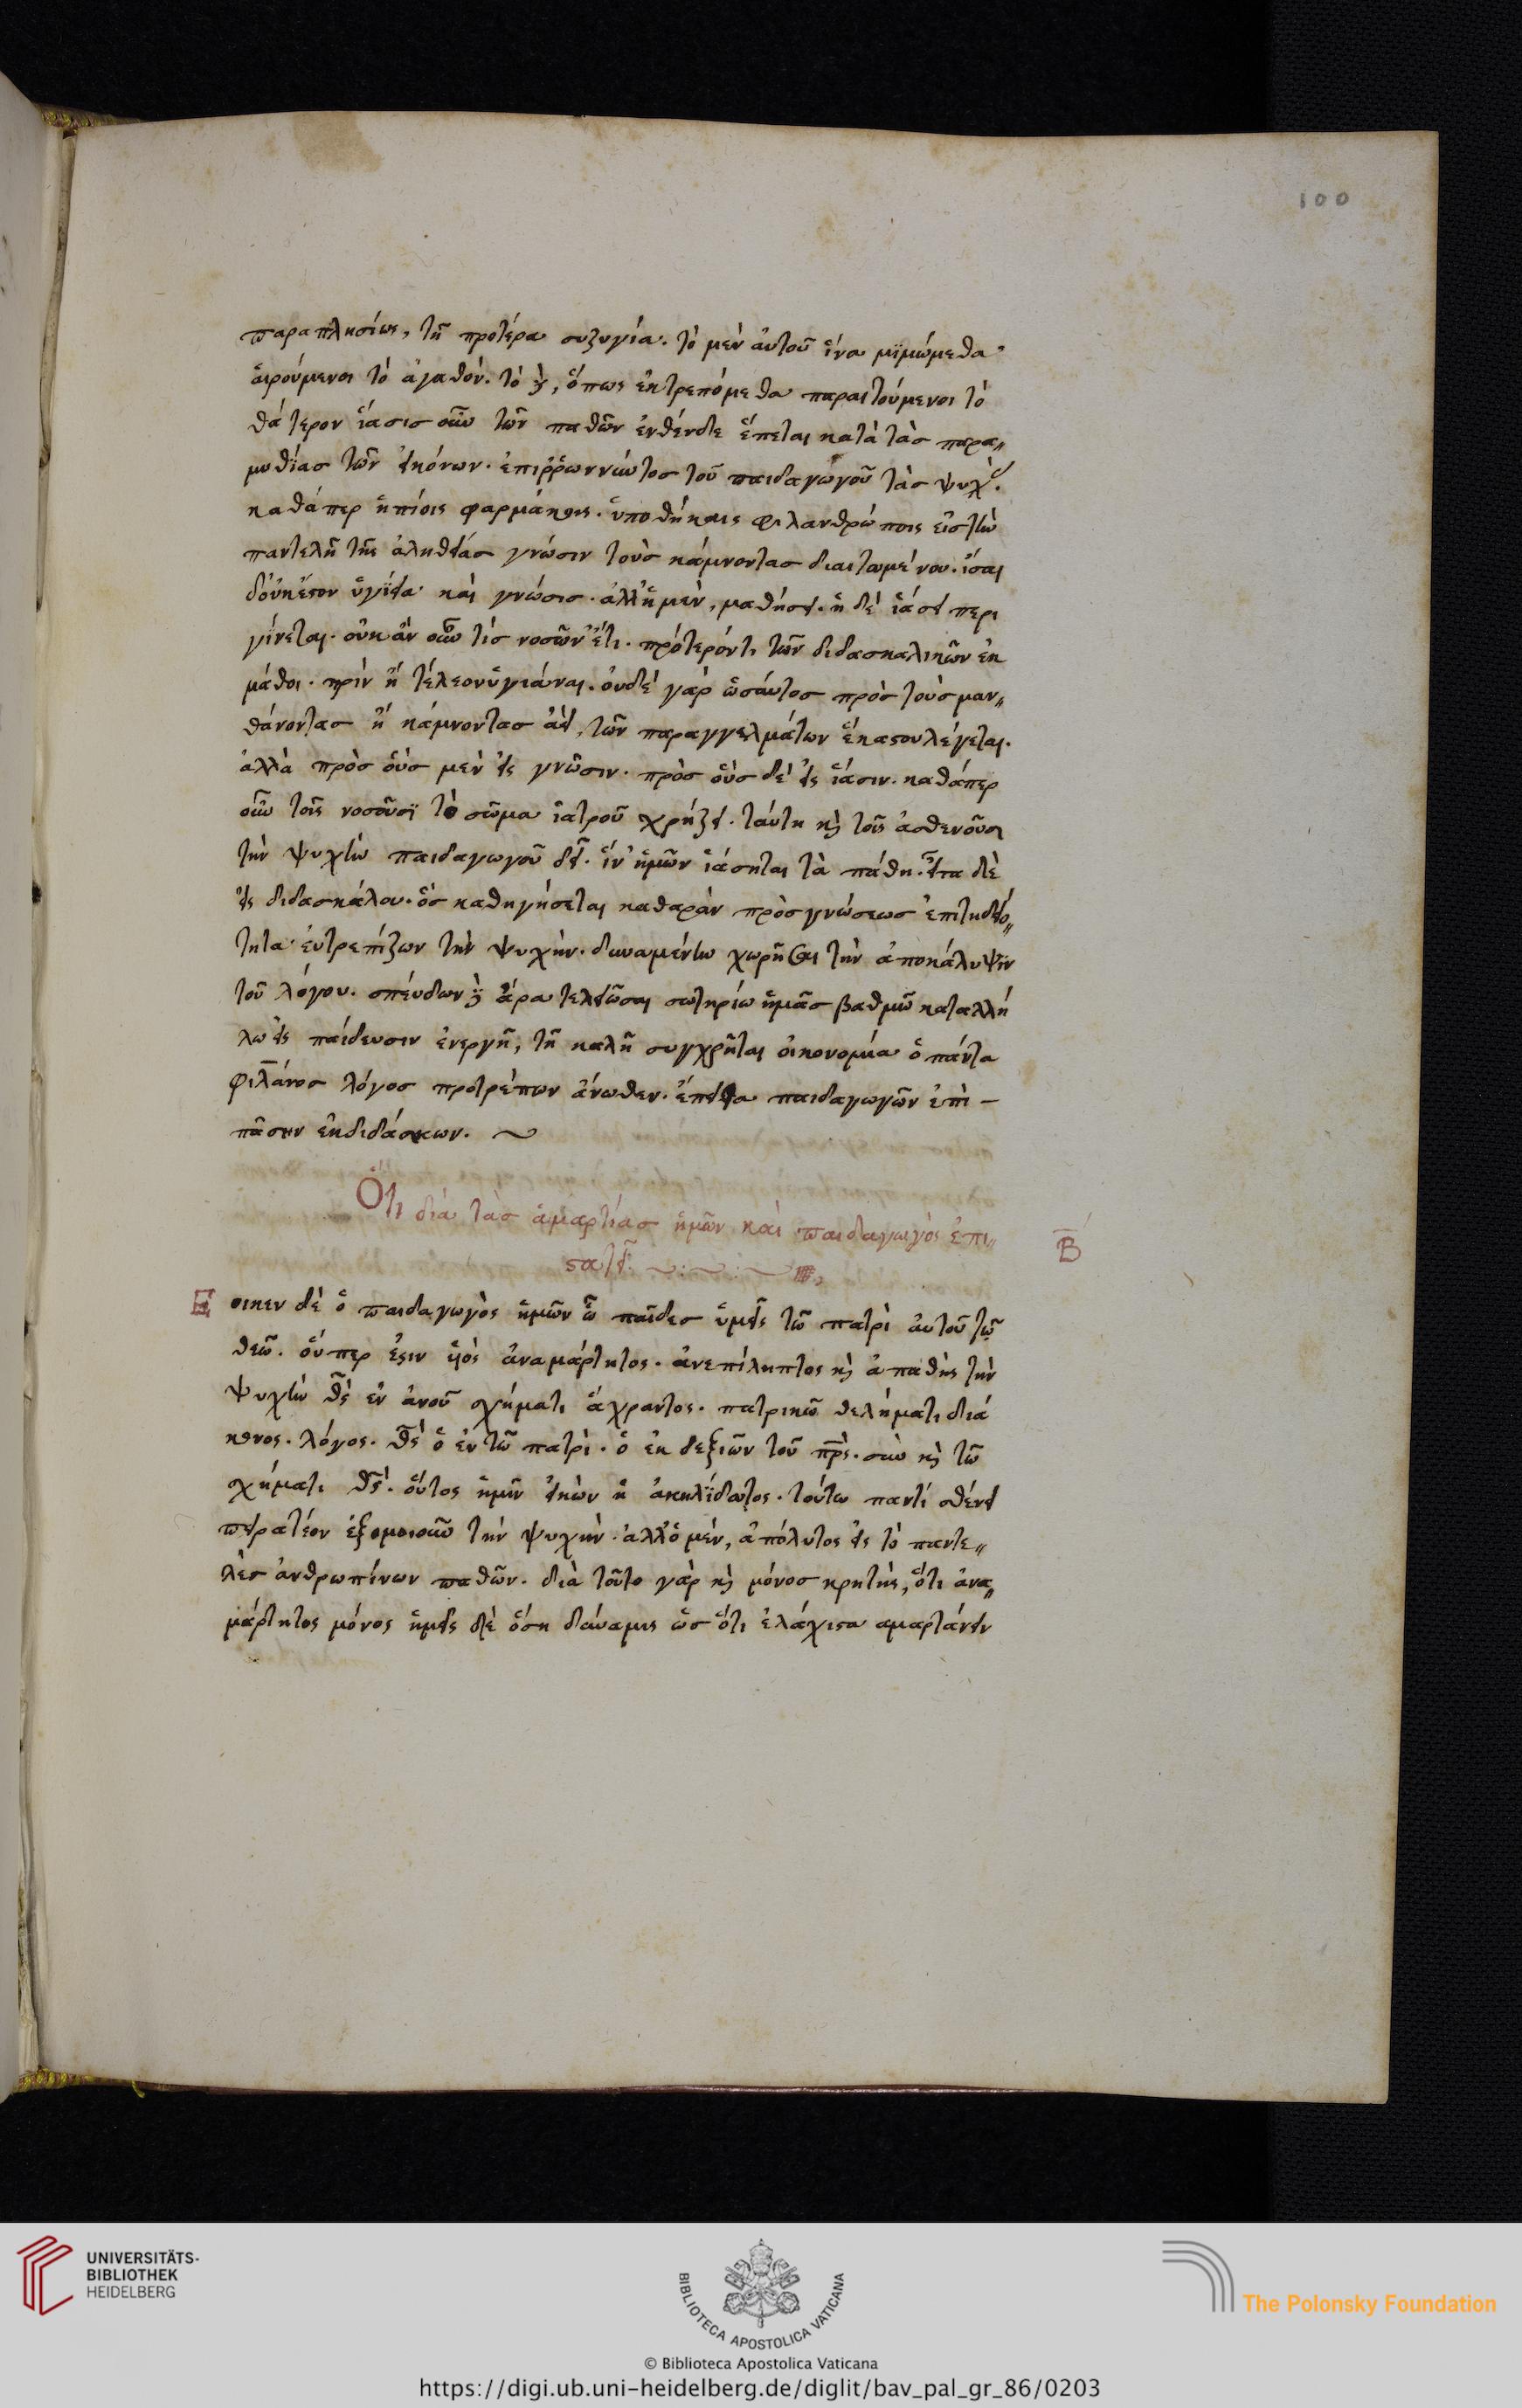 100
παραπλησίως, τῆ προτέρα συζυγία. τὸ μὲν αὐτοῦ ἵνα μϊμώμεθα
ἁιρούμενοι τὸ ἀγαθόν. τὸ δὲ, ὅπως ἐκτρεπόμεθα παραιτούμενοι τὸ
θάτερον ἵασις οὖν τῶν παθῶν ἐνθένδε ἕπεται κατὰ τὰς παρα„
μυθίας τῶν εἰκόνων. ἐπιῤῥωννύντος τοῦ παιδαγωγοῦ τὰς ψυχὰς.
καθάπερ ἠπίοις φαρμάκοις. ὑποθήκαις φιλανθρώποις εἰς τὴν
παντελῆ τῆς ἀληθείας γνῶσιν τοὺς κάμνοντας διαιτωμένου. ἴσαι
δ'ὀυκἔστον ὑγίεια καὶ γνῶσις. ἀλλ'ἡ μὲν, μαθήσει. ἡ δὲ ἰάσει περι
γίνεται. οὐκ ἂν οὖν τίς νοσῶν ἔτι. πρότερόντι τῶν διδασκαλικῶν ἐκ
μάθοι. πρὶν ἢ τέλεονὑγιάναι. ὀυδὲ γὰρ ὡσάυτος πρὸς τοὺς μαν„
θάνοντας ἢ κάμνοντας ἀεὶ, τῶν παραγγελμάτων ἕκαστον λέγεται.
ἀλλὰ πρὸς ὁὺς μὲν εἰς γνῶσιν. πρὸς ὁὺς δὲ εἰς ἴασιν. καθάπερ
οὖν τοῖς νοσοῦσϊ τὸ σῶμα ἰατροῦ χρήζει. ταύτη κὶ τοῖς ἀσθενοῦσι
τὴν ψυχὴν παιδαγωγοῦ δεῖ. ἵν' ἡμῶν ἰάσηται τὰ πάθη. εἶτα δὲ
εἰς διδασκάλου. ὃς καθηγήσεται καθαρὰν πρὸς γνώσεως ἐπιτηδειό„
τητα ἐυτρεπίζων τὴν ψυχὴν. δυναμένην χωρῆσαι τὴν ἀποκάλυψϊν
τοῦ λόγου. σπέυδων δὲ ἄρα τελειῶσαι σωτηρίω ἡμᾶς βαθμῶ καταλλή
λω εἰς παίδευσιν ἐνεργῆ, τῆ καλῆ συγχρῆται ὀικονομία ὁ πάντα
φιλᾶνος λόγος προτρέπων ἄνωθεν. ἔπειτα παιδαγωγῶν ἐπὶ –
πᾶσιν ἐκδιδάσκων. ~
Ὅτι διὰ τὰς ἁμαρτίας ἡμῶν καὶ παιδαγωγὸς ἐπι„
στατεῖ. ~:~:~
Β
Ἔοικεν δὲ ὁ παιδαγωγὸς ἡμῶν ὦ παῖδες ὑμεῖς τῶ πατρὶ ἀυτοῦ τῶ
θεῶ. ὅυπερ ἐστιν ὑιὸς ἀναμάρτητος. ἀνεπίληπτος κὶ ἀπαθὴς τὴν
ψυχὴν θς ἐν ἀνοῦ σχήματι ἄχραντος. πατρικῶ θελήματι διά
κονος. λόγος. θς ὁ ἐν τῶ πατρὶ. ὁ ἐκ δεξιῶν τοῦ πρς. σὺν κὶ τῶ
σχήματι θς. οὗτος ἡμῖν εἰκὼν ἡ ἀκηλϊδωτος. τούτω παντὶ σθένει
πειρατέον ἐξομοιοῦν τὴν ψυχὴν. ἀλλ'ὁ μὲν, ἀπόλυτος εἰς τὸ παντε„
λὲς ἀνθρωπίνων παθῶν. διὰ τοῦτο γὰρ κὶ μόνος κρητὴς, ὅτι ἀνα„
μάρτητος μόνος ἡμεῖς δὲ ὅση δύναμις ὡς ὅτι ἐλάχιστα αμαρτάνειν
UNIVERSITÄTS-
BIBLIOTHEK
HEIDELBERG
BIBLIOTECA APOSTOLICA VATICANA
The Polonsky Foundation
© Biblioteca Apostolica Vaticana
https://digi.ub.uni-heidelberg.de/diglit/bav_pal_gr_86/0203